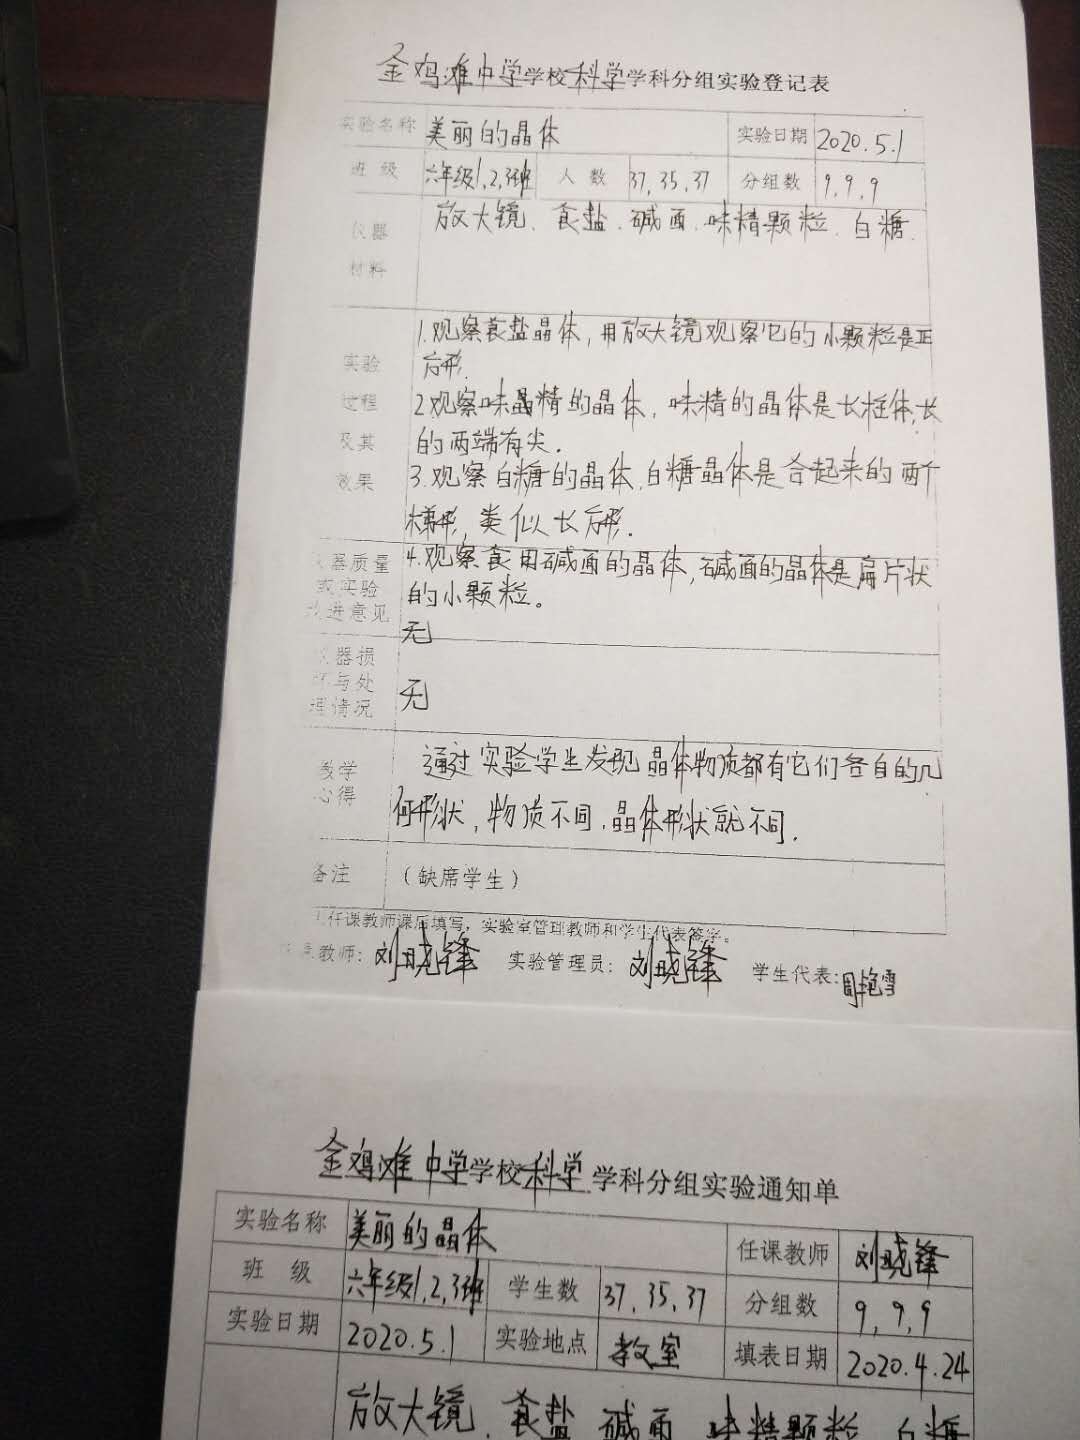 金鸡滩中学学校科学学科分组实验登记表
实验名称 美丽的晶体 实验日期 2020.5.1
班 级 六年级1,2,3班 人 数 37,35,37 分组数 9,9,9
仪器 放大镜、食盐、碱面、味精颗粒、白糖
材料
实验 1.观察食盐晶体,用放大镜观察它的小颗粒是正
方形.
过程 2.观察味精的晶体,味精的晶体是长柱体,长
及其 的两端有尖.
效果 3.观察白糖的晶体,白糖晶体是合起来的两个
梯形,类似长方形.
仪器质量 4.观察食用碱面的晶体,碱面的晶体是扁片状
或实验 的小颗粒。
改进意见 无
仪器损
坏与处 无
理情况
教学 通过实验学生发现晶体物质都有它们各自的几
心得 何形状,物质不同,晶体形状就不同.
备注 (缺席学生)
任课教师课后填写,实验室管理教师和学生代表签字。
课教师:刘晓锋 实验管理员:刘晓锋 学生代表:周艳雪
金鸡滩中学学校科学学科分组实验通知单
实验名称 美丽的晶体 任课教师 刘晓锋
班 级 六年级1,2,3班 学生数 37,35,37 分组数 9,9,9
实验日期 2020.5.1 实验地点 教室 填表日期 2020.4.24
放大镜、食盐 碱面 味精颗粒 白糖